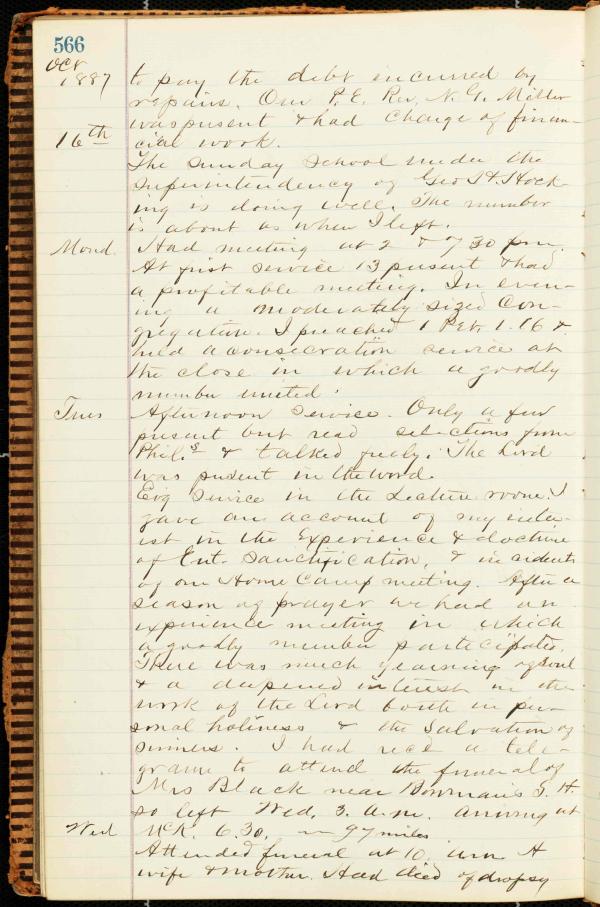 566
Oct
1887
to pay the debt incurred by
repairs. Our P.E. Rev. N. G. Miller
was present & had charge of finan-
16th
cial work.
The Sunday School under the
Superintendency of Geo St. Hock-
ing is doing well. The number
is about as when I left.
Mond. Had meeting at 2 & 7 30 pm.
At first service 13 present & had
a profitable meeting. In even-
ing a moderately sized Con-
gregation. I preached 1 Pet. 1.16 &
held a consecration service at
the close in which a goodly
number united.
Tues Afternoon service. Only a few
present but read selections from
Phil.s & talked freely. The Lord
was present in the word.
Evg Service in the Lecture room. I
gave an account of my inter-
est in the Experience & doctrine
of Ent. Sanctification, & incidents
of our Home Camp meeting. After a
season of prayer we had an
experience meeting in which
a goodly number participated.
There was much yearning of soul
& a deepened interest in the
work of the Lord both in per-
sonal holiness & the Salvation of
sinners. I had recd a tele-
gram to attend the funeral of
Mrs Black near Bowman's S. H.
so left Wed. 3. a.m. arriving at
Wed McK. 6.30. 97 miles
Attended funeral at 10 a.m. A
wife & mother. Had died of dropsy